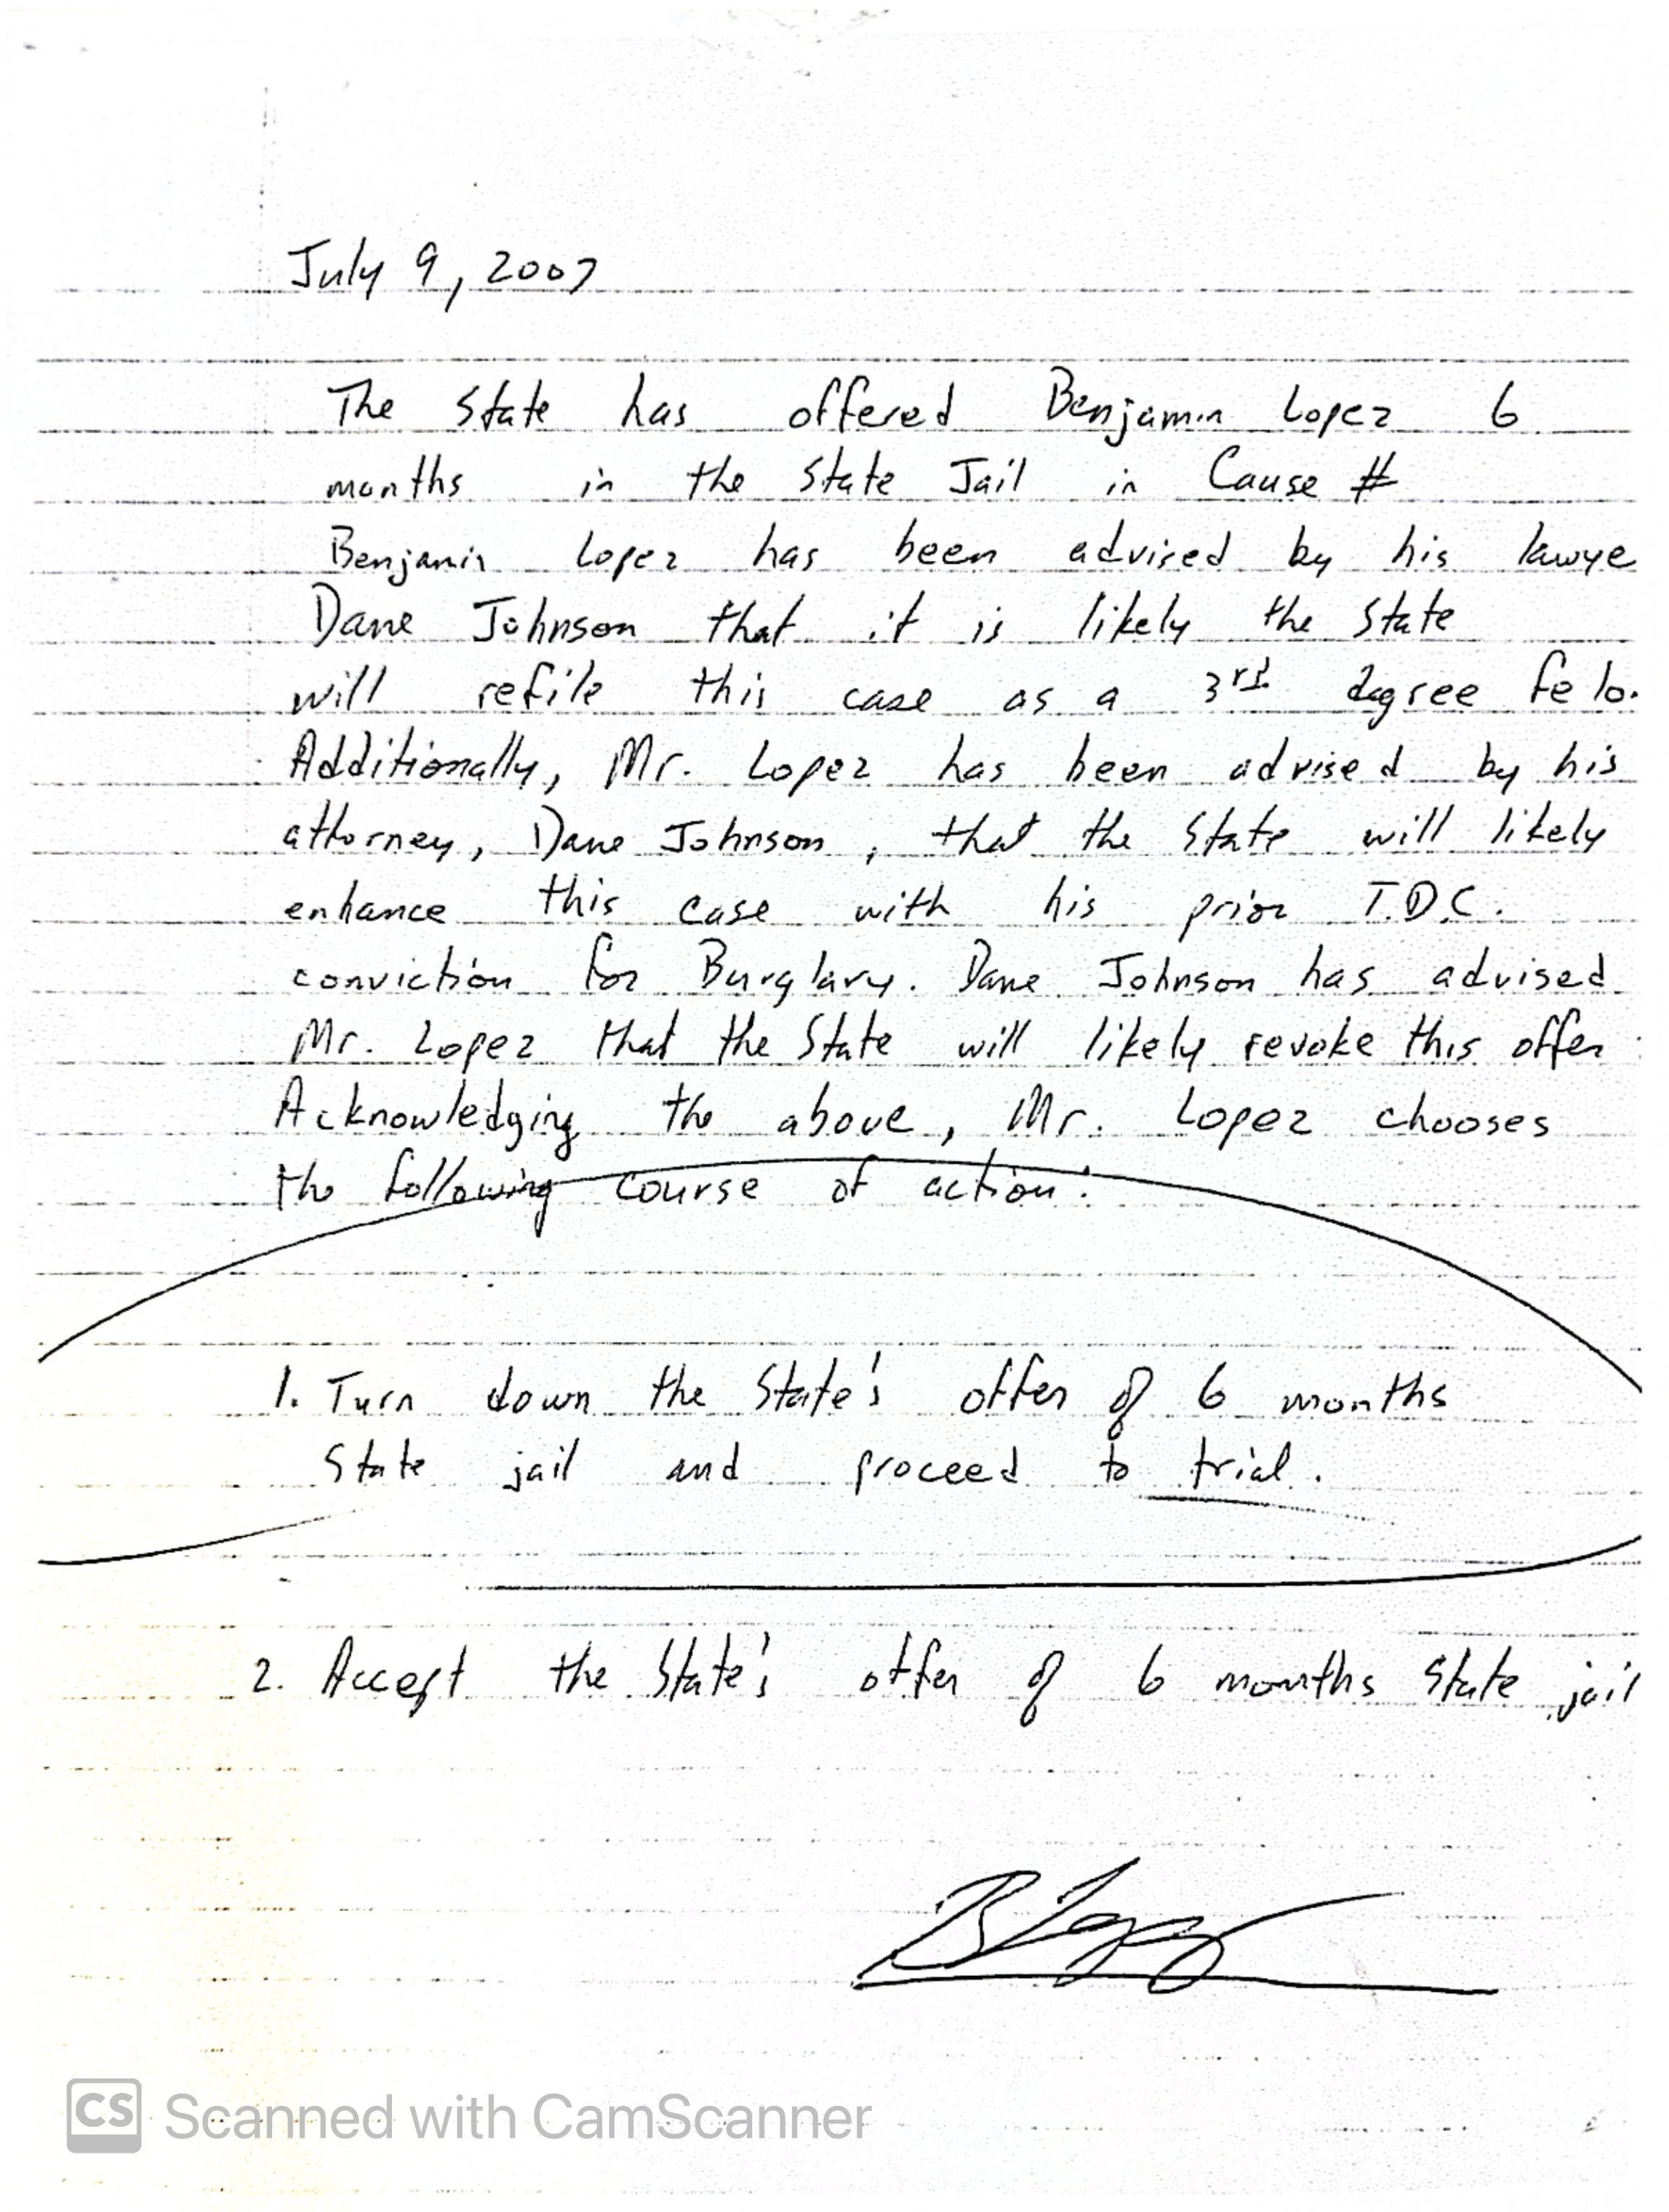 July 9, 2007
The State has offered Benjamin Lopez 6
months in the State Jail in Cause #
Benjamin Lopez has been advised by his lawye
Dane Johnson that it is likely the State
will refile this case as a 3rd degree felo.
Additionally, Mr. Lopez has been advised by his
attorney, Dane Johnson, that the State will likely
enhance this case with his prior T.D.C.
conviction for Burglary. Dane Johnson has advised
Mr. Lopez that the State will likely revoke this offer
Acknowledging the above, Mr. Lopez chooses
the following course of action:
1. Turn down the State's offer of 6 months
State jail and proceed to trial.
2. Accept the State's offer of 6 months State jail
B Lopez
CS Scanned with CamScanner